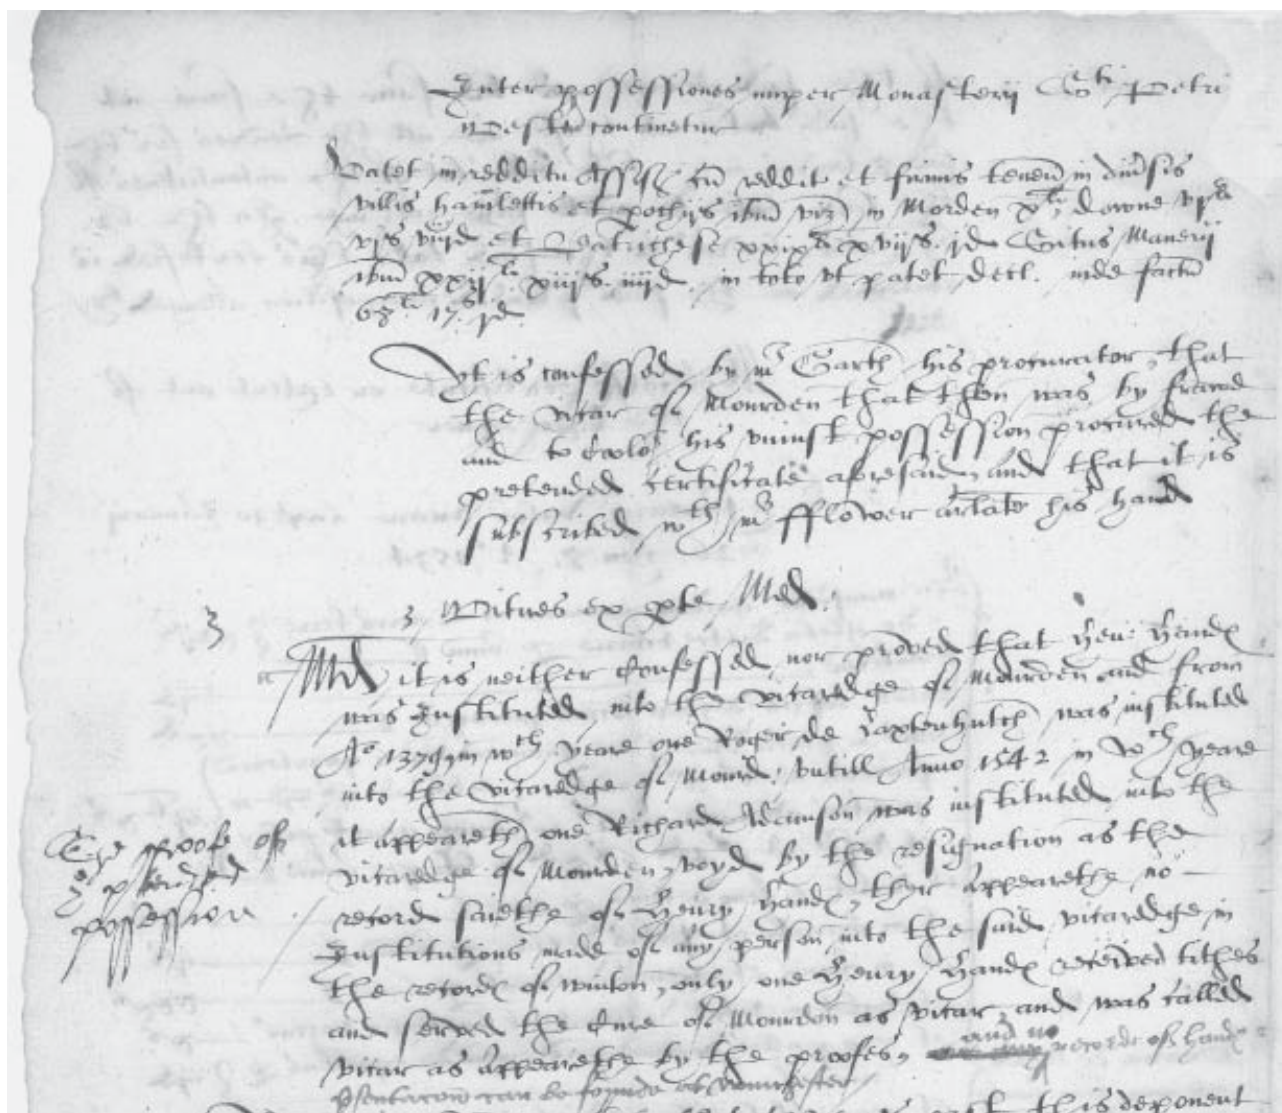 Inter possessiones nuper Monasterij Sti Petri
Westm continetur
Patet in redditu Assis cu reddit et firmis tenen in divsis
villis hamlettis et pochijs ibm vizn in Morden xli, downe vjli
vjs viijd et xxixli xvijs jd Scitus Manerij
ibm xxijli xiijs iiijd in toto vt patet decl. inde factu
68li 17s jd
It is confessed by mr Garth his procurator that
the vicar of Mourden that then was by frawd
and to his vniust possession procured the
pretended certificate aforesaid, and that it is
subscribed wth mr fflower his hand
3 3 Witnes ex pte Md
Md it is neither confessed nor proved that Hen: Hand
was Instituted into the vicaredge of Mourden and from
Ao 1379 in wch yeare one Roger de was instituted
into the vicaredge of Mourd: vntill Anno 1542 in wch yeare
it appeareth one Richard Adamson was instituted into the
vicaredge of Mourden, voyd by the resignation as the
record saiethe of Henry Hand, ther appearethe no
Institutions made of any person into the said vicaredge in
the record of winton, only one Henry Hand received tithes
and served the Cure of Mourdon as vicar and was called
vicar as appearethe by the proofes, and no recorde of hand
psentacion can be founde at winchester
The proofe of
possession
this deponent